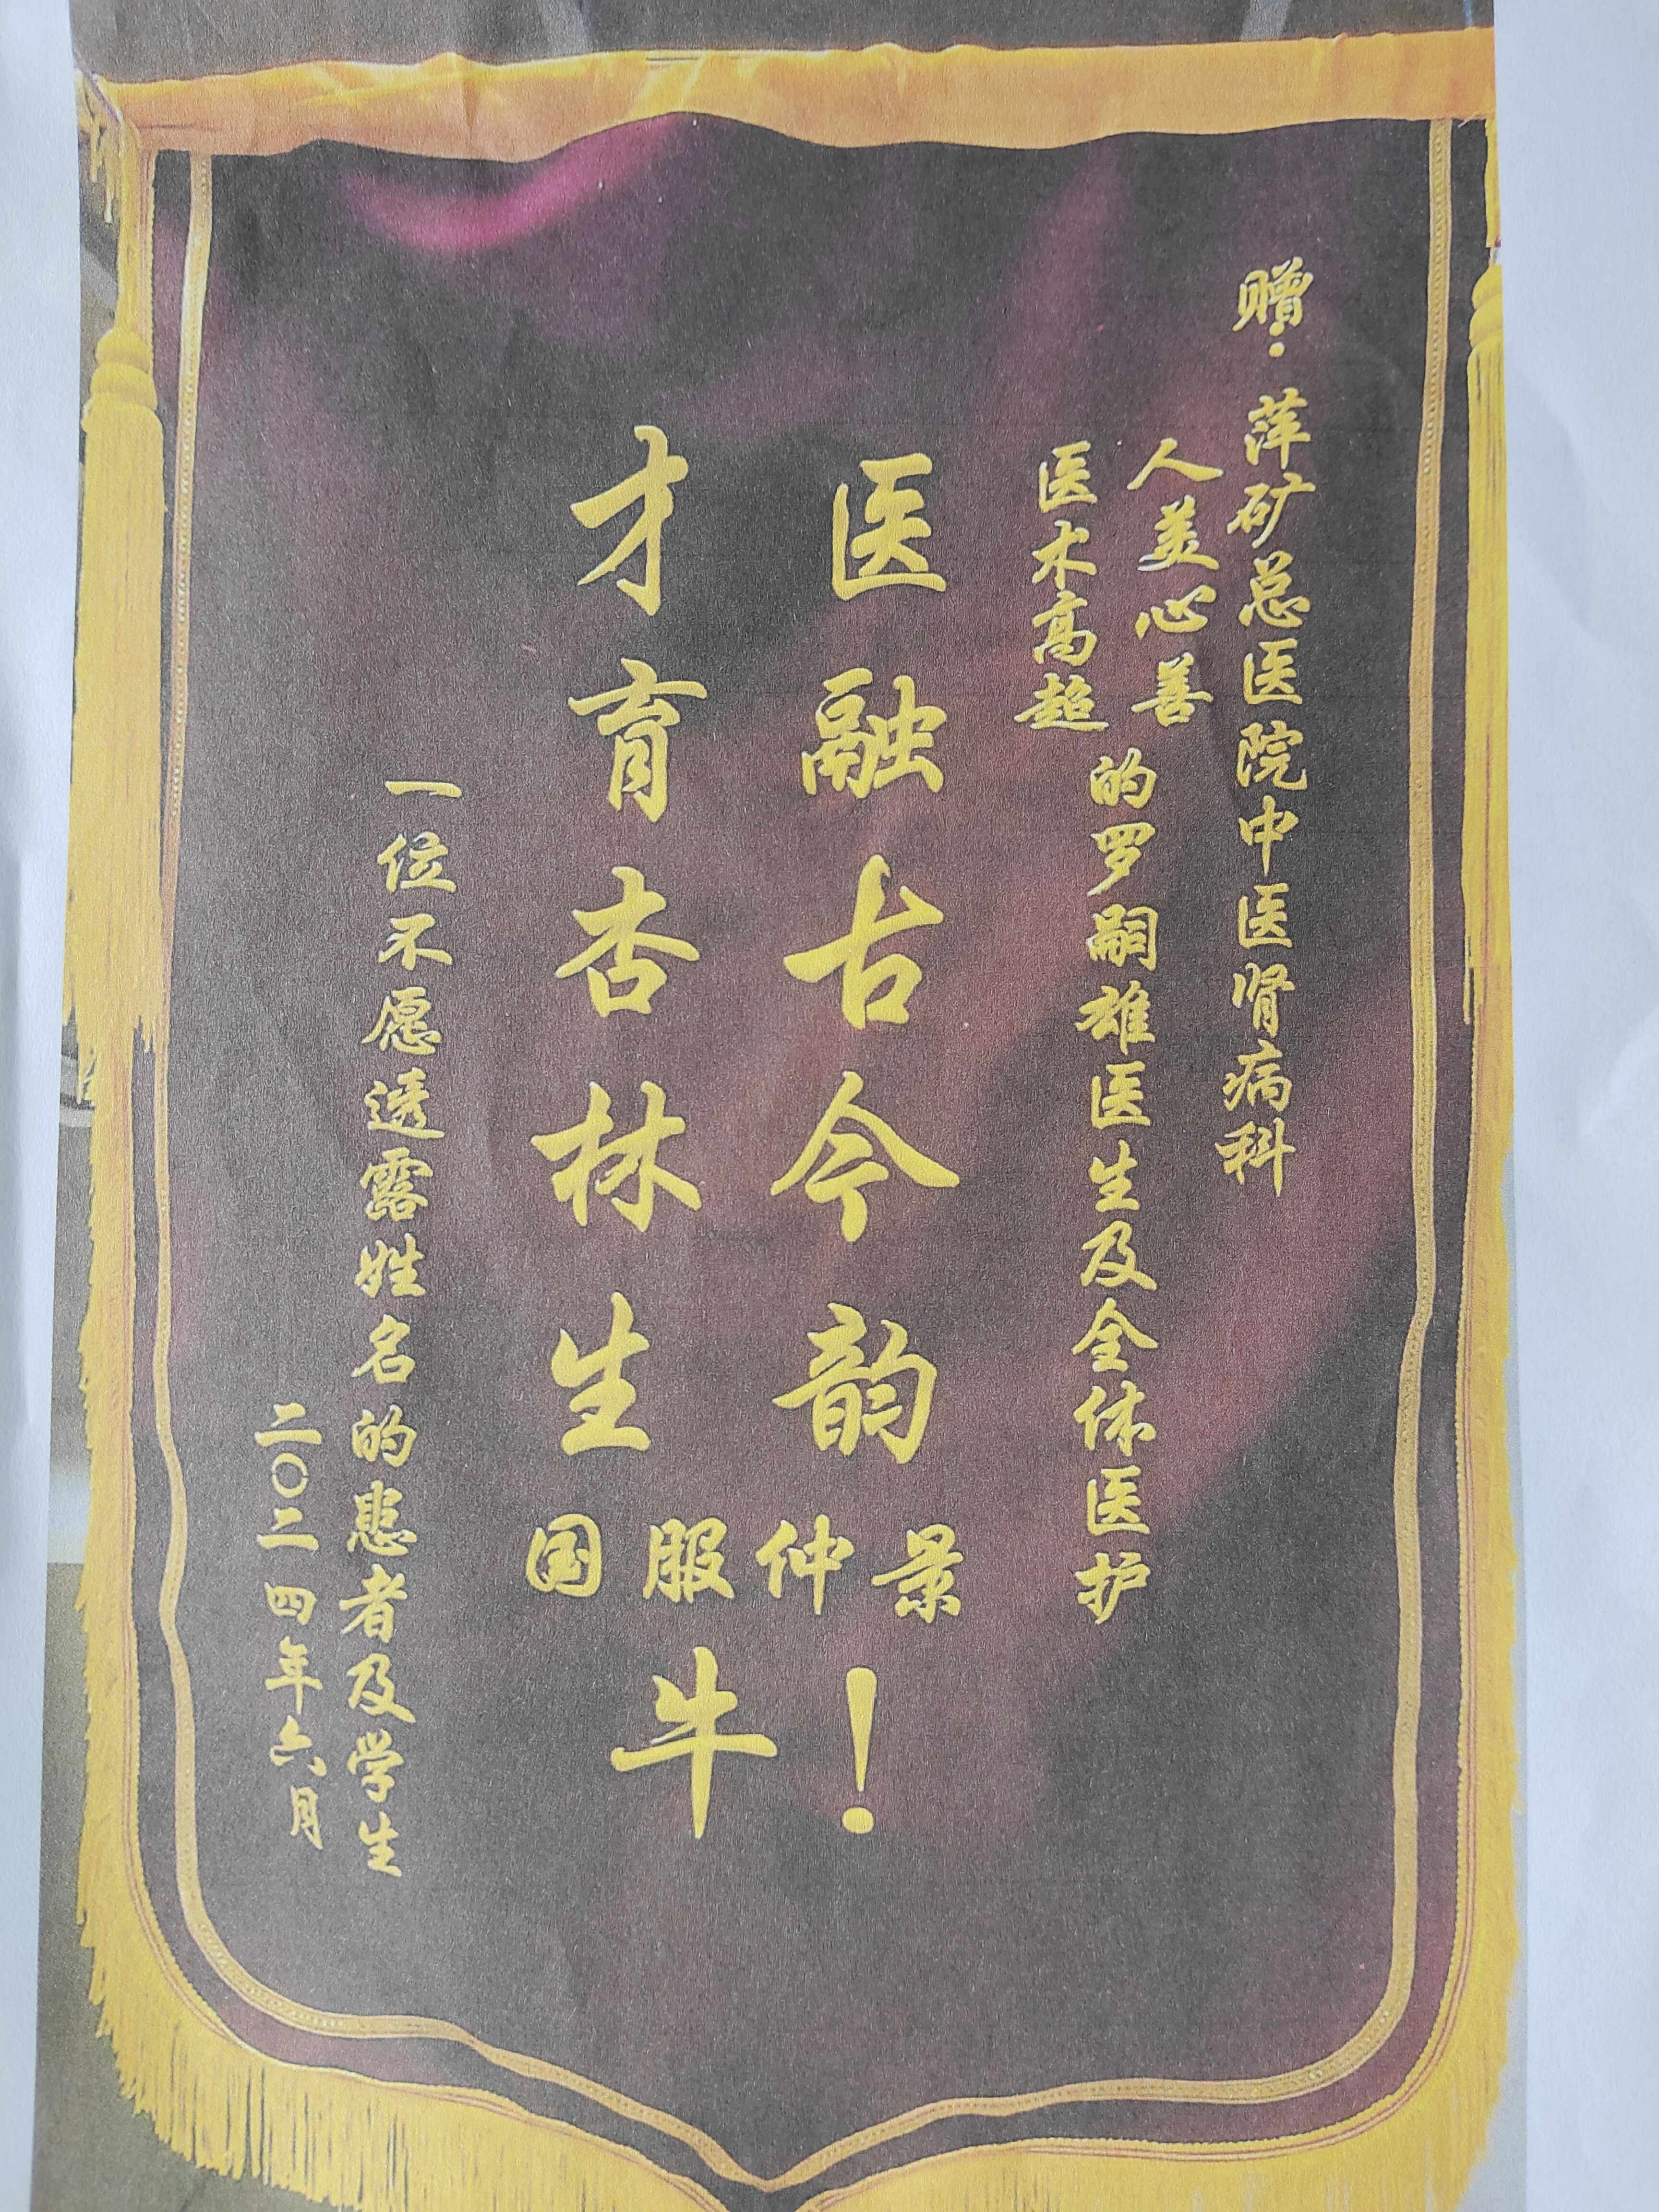 赠:萍矿总医院中医肾病科
人美心善
医术高超
的罗嗣雄医生及全体医护
医融古今韵
才育杏林生
国服仲景
牛!
一位不愿透露姓名的患者及学生
二〇二四年六月